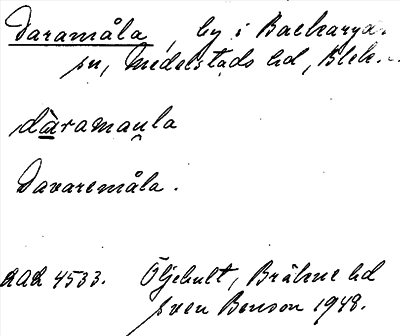 Daramåla, by i Backaryds
sn, Medelstads hd, Blek.
dàramaula
Davaremåla.
RAÄ 4533. Öljehult, Bräkne hd
Sven Benson 1948.